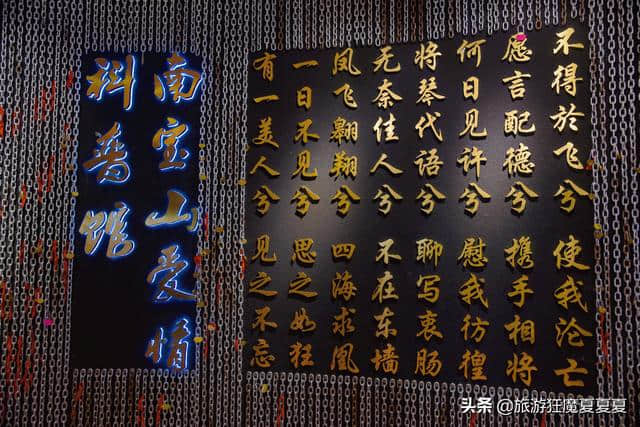 南宝山爱情
科普馆
有一美人兮 见之不忘
一日不见兮 思之如狂
凤飞翱翔兮 四海求凰
无奈佳人兮 不在东墙
将琴代语兮 聊写衷肠
何日见许兮 慰我彷徨
愿言配德兮 携手相将
不得於飞兮 使我沦亡
头条 @旅游狂魔夏夏夏